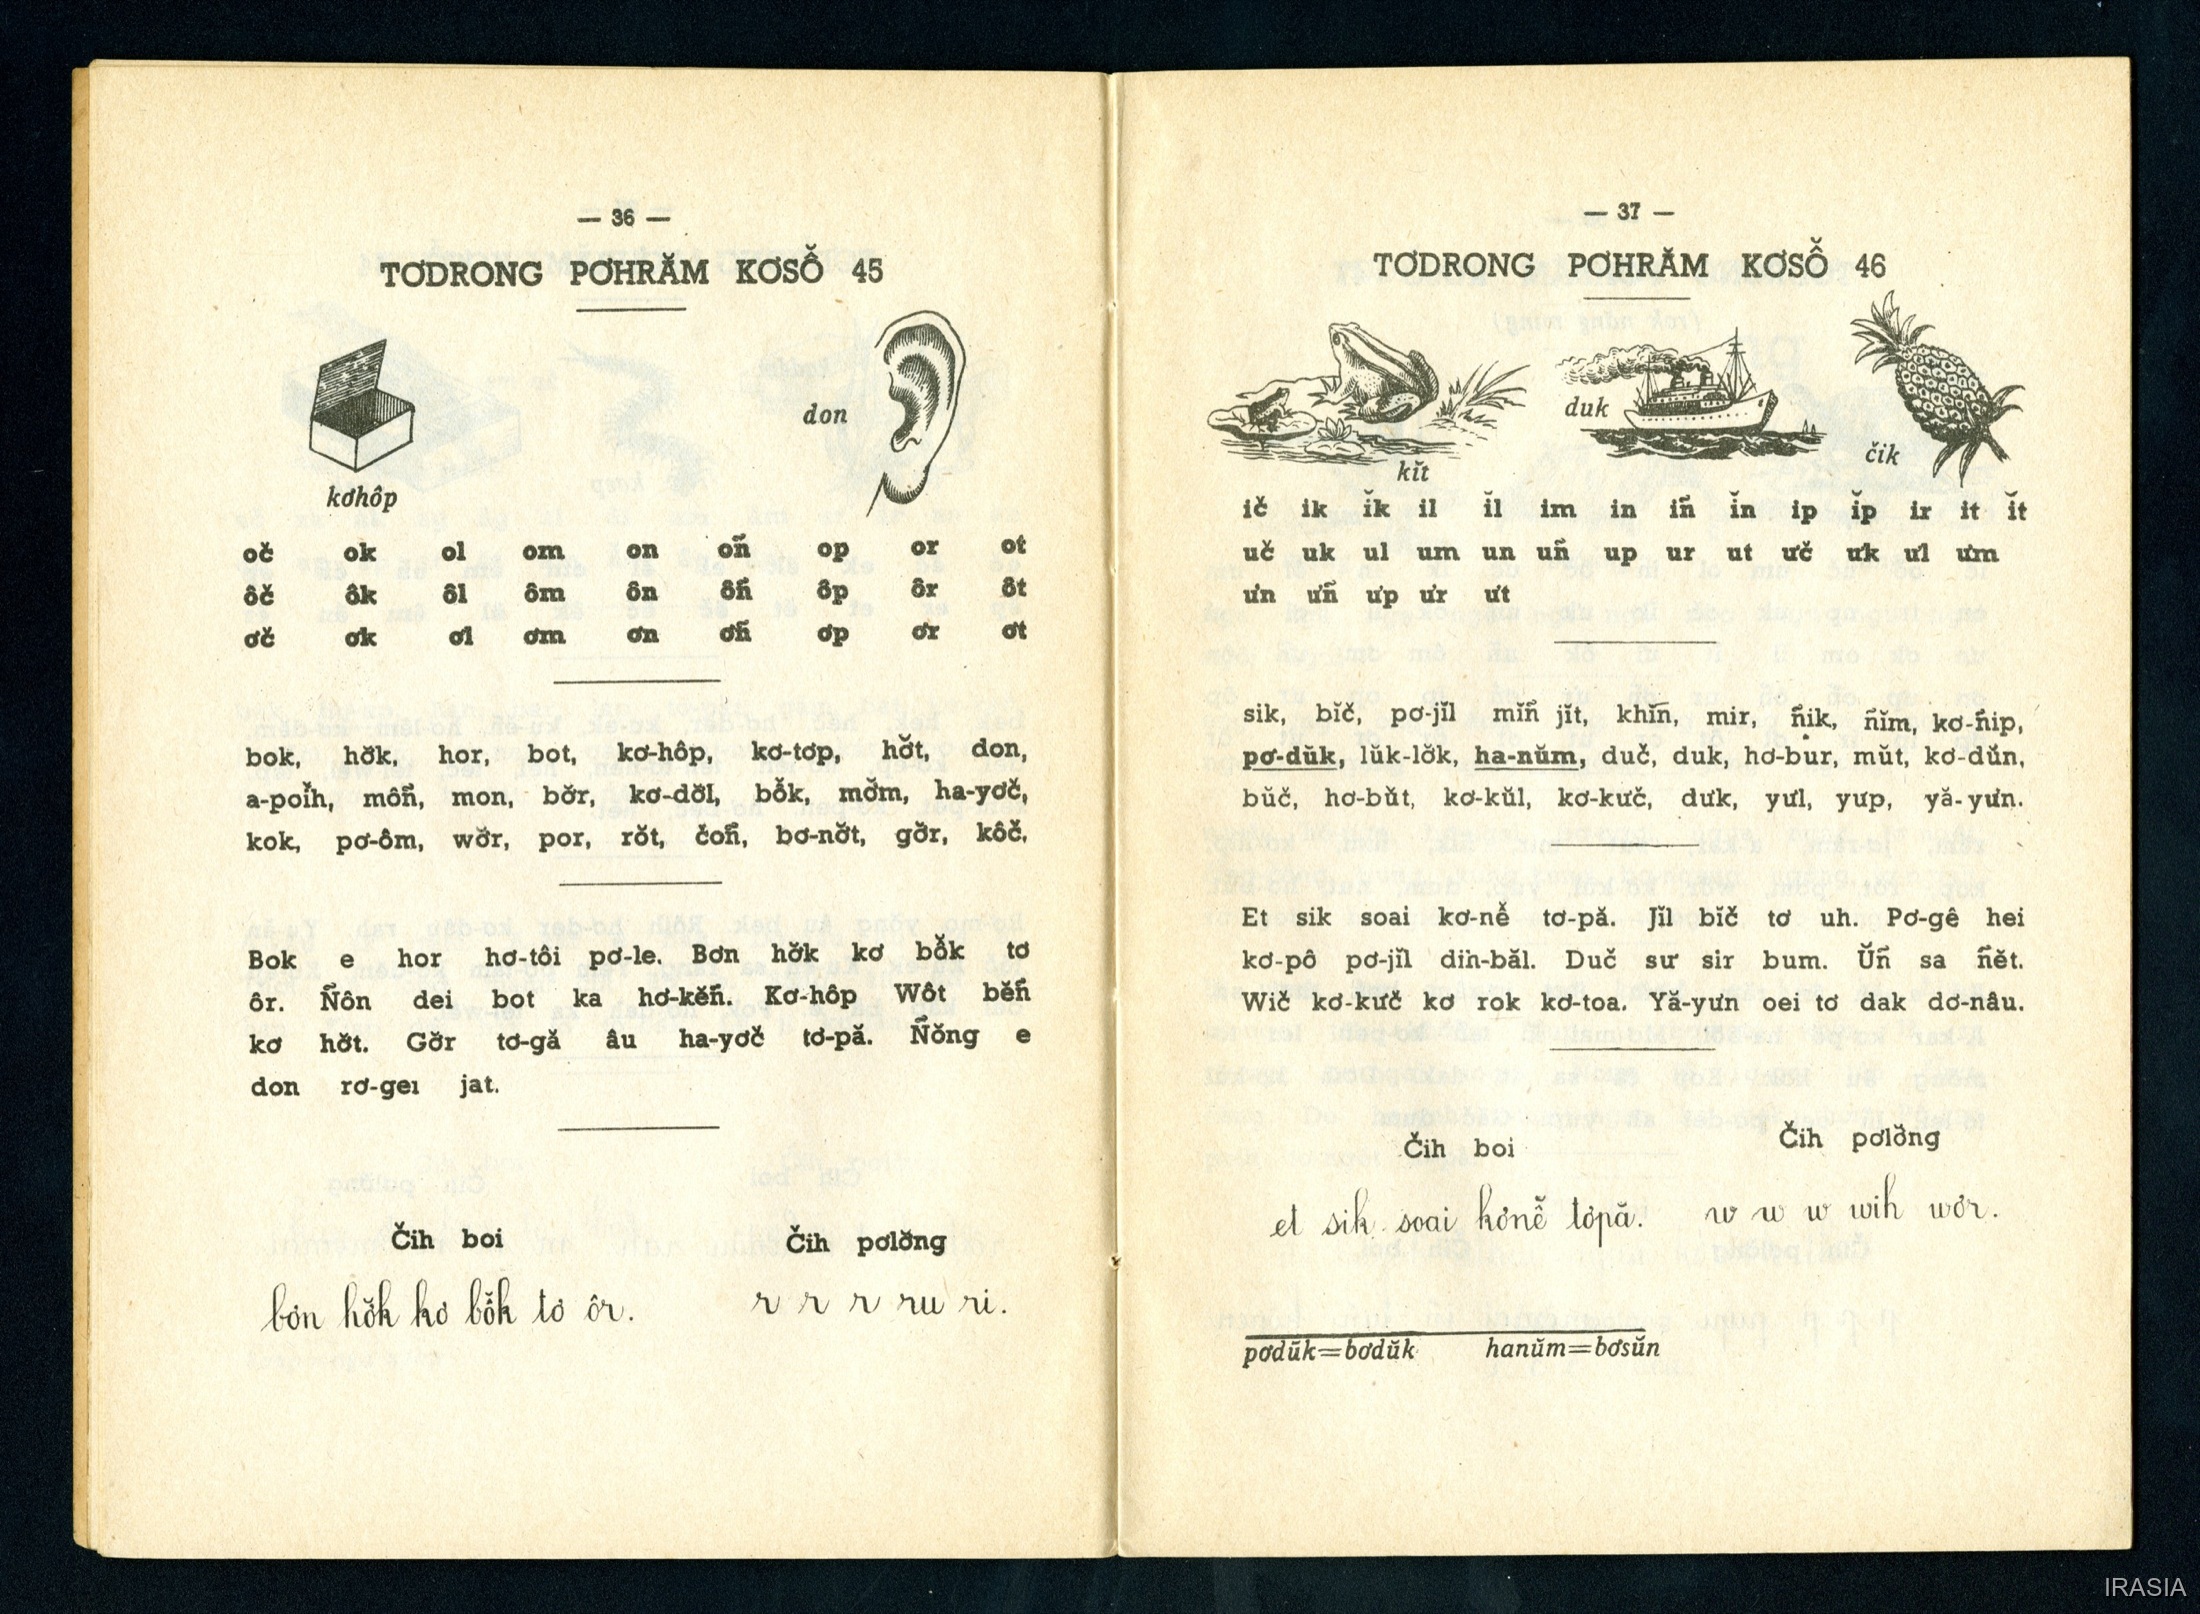 — 36 —
TƠDRONG PƠHRĂM KƠSÔ̆ 45
kơhôp
don
oč ok ol om on oñ op or ot
ôč ôk ôl ôm ôn ôñ ôp ôr ôt
ơč ơk ơl ơm ơn ơñ ơp ơr ơt
bok, hơ̆k, hor, bot, kơ-hôp, kơ-tơp, hơ̆t, don,
a-poĭh, môñ, mon, bơ̆r, kơ-dơ̆l, bô̆k, mơ̆m, ha-yơč,
kok, pơ-ôm, wơ̆r, por, rŏt, čoñ, bơ-nơ̆t, gơ̆r, kôč.
Bok e hor hơ-tôi pơ-le. Bơn hơ̆k kơ bô̆k tơ
ôr. Ñôn dei bot ka hơ-kĕñ. Kơ-hôp Wôt bĕñ
kơ hơ̆t. Gơ̆r tơ-gă âu ha-yơč tơ-pă. Ñŏng e
don rơ-gei jat.
Čih boi
Čih pơlơ̆ng
bơn hơ̆k kơ bô̆k tơ ôr.
r r r ru ri.
— 37 —
TƠDRONG PƠHRĂM KƠSÔ̆ 46
kĭt
duk
čik
ič ik ĭk il ĭl im in iñ ĭn ip ĭp ir it ĭt
uč uk ul um un uñ up ur ut ưč ưk ưl ưm
ưn ưñ ưp ưr ưt
sik, bĭč, pơ-jĭl mĭñ jĭt, khĭn, mir, ñik, ñĭm, kơ-ñip,
pơ-dŭk, lŭk-lŏk, ha-nŭm, duč, duk, hơ-bur, mŭt, kơ-dŭn,
bŭč, hơ-bŭt, kơ-kŭl, kơ-kưč, dưk, yưl, yưp, yă-yưn.
Et sik soai kơ-nê̆ tơ-pă. Jĭl bĭč tơ uh. Pơ-gê hei
kơ-pô pơ-jĭl dih-băl. Duč sư sir bum. Ŭñ sa ñĕt.
Wič kơ-kưč kơ rok kơ-toa. Yă-yưn oei tơ dak dơ-nâu.
Čih boi
Čih pơlơ̆ng
et sik soai kơnê̆ tơpă.
w w w wih wơr.
pơdŭk=bơdŭk hanŭm=bơsŭn
IRASIA